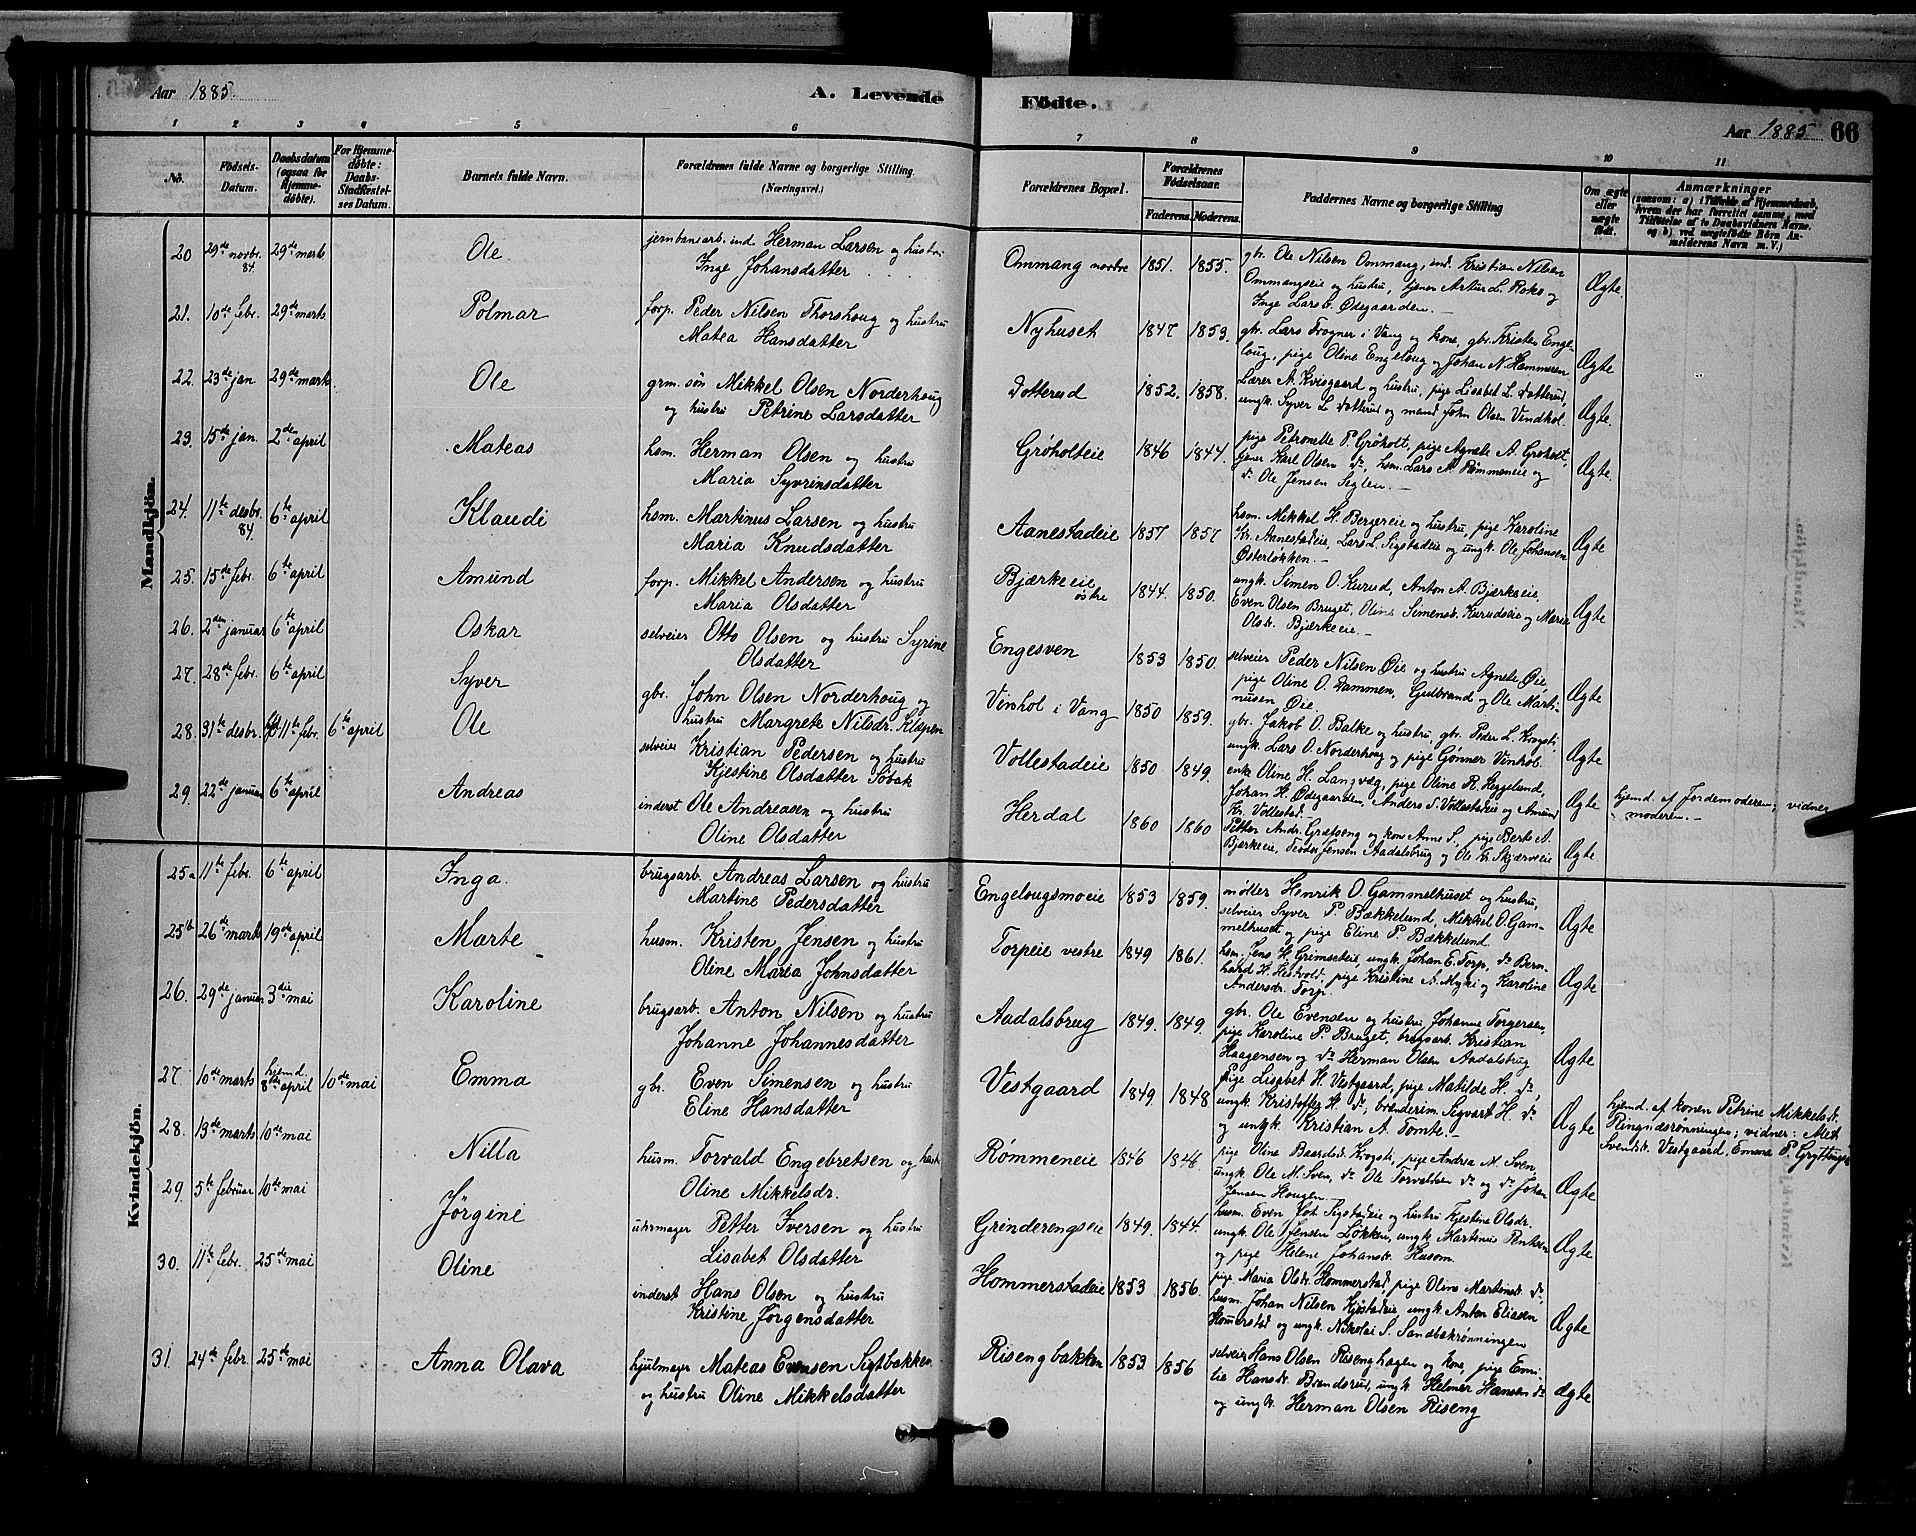 Aar 1885. A. Levende Fødte. Aar 1885 66
1 2 3 4 5 6 7 8 9 10 11
No. Fødsels-Datum. Daabsdatum (ogsaa for Hjemmedøbte). For Hjemmedøbte: Daabs-Stadfæstelses Datum. Barnets fulde Navn. Forældrenes fulde Navne og borgerlige Stilling. (Næringsvei.) Forældrenes Bopæl. Forældrenes Fødselsaar. Faderens. Moderens. Faddernes Navne og borgerlige Stilling Om ægte eller uægte født. Anmærkninger (saasom: a) i Tilfælde af Hjemmedaab, hvem der har forrettet samme, med Tilføielse af to Daabsvidners Navne, og b) ved uægtefødte Børn Anmelderens Navn m. V.)
Mandkjön.
20 29de novbr. 84. 29de marts Ole jernbanearb. ind. Herman Larsen og hustru
Inge Johansdatter
Ommang nordre 1851. 1855. gbr. Ole Nilsen Ommang, ind. Kristian Nilsen
Ommangseie og hustru, tjener Artur L. Roko og
Inge Larsd. Ødegaarden. Ægte.
21. 10de febr. 29de marts Polmar forp. Peder Nilsen Thorshoug og hustru
Matea Hansdatter
Nyhuset 1847 1853. gbr. Lars Frogner i Vang og kone, gbr. Kristen Enge-
loug, pige Oline Engeloug og Johan N. Hammeren Ægte
22. 23de jan 29de marts. Ole grm. søn Mikkel Olsen Norderhoug
og hustru Petrine Larsdatter
Dotterud 1852. 1858. Lærer A. Kvisgaard og hustru, pige Lisabet L. Dotterud,
ungk. Syver L. Dotterud og mand John Olsen Vindhol. Ægte.
23. 15de jan. 2den april Mateas hsm. Herman Olsen og hustru
Maria Syvrinsdatter
Grøholteie 1846 1844. pige Petronelle P. Grøholt, pige Agnete A. Grøholt,
tjener Karl Olsen do, hsm. Lars N. Rømmeneie og
do Ole Jensen Seglen. Ægte.
24. 11te desbr. 84. 6te april Klaudi hsm. Martinus Larsen og hustru
Maria Knudsdatter
Aanestadeie 1857 1857 hsm. Mikkel H. Bergereie og hustru, pige Karoline
Kr. Aanestadeie, Lars L. Sigstadeie og ungk. Ole Johansen
Østerløkken. Ægte.
25. 15de febr. 6te april Amund forp. Mikkel Andersen og hustru
Maria Olsdatter
Bjærkeie østre 1844. 1850. ungk. Simen O. Kurud, Anton A. Bjærkeeie,
Even Olsen Bruget, Oline Simensd. Kurudseie og Marie
Olsdr. Bjærkeeie. Ægte
26. 2den januar 6te april Oskar selveier Otto Olsen og hustru Syrine
Olsdatter
Engesven 1853 1850. selveier Peder Nilsen Øie og hustru Agnete Øie,
pige Oline O. Dammen, Gulbrand og Ole Marti-
nusen Øie. Ægte
27. 28de febr. 6te april Syver gbr. John Olsen Norderhoug og
hustru Margrete Nilsdr. Klæpen
Vinhol i Vang 1850 1859. gbr. Jakob O. Balke og hustru, gbr. Peder L. Krogsti,
ungk. Lars O. Norderhoug og pige Gønner Vinhol. Ægte
28. 31te desbr. 11te febr. 6te april Ole selveier Kristian Pedersen og hustru
Kjestine Olsdatter Søbak
Vollestadeie 1850 1849. enke Oline H. Langvæg, pige Oline R. Heggelund,
Johan H. Ødegaarden, Anders S. Vollestadeie og Amund
Kr. Vollestad. Ægte hjemd. af Jordemoderen; vidner,
moderen.
29. 22de januar 6te april Andreas inderst Ole Andreasen og hustru
Oline Olsdatter
Herdal 1860 1860 Petter Andr. Græfseng og kone Anne S., pige Berte A.
Bjærkeeie, Teodor Jensen Aadalsbrug og Ole Kr. Skjærveeie Ægte
Kvindekjön.
25a 11te febr. 6te april Inga. brugsarb. Andreas Larsen og hustru
Martine Pedersdatter
Engelougsmoeie 1853 1859. møller Henrik O. Gammelhuset og hustru,
selveier Syver P. Bækkelund, Mikkel O. Gam-
melhuset og pige Eline P. Bækkelund Ægte
25b 26de marts 19de april Marte husm. Kristen Jensen og hustru
Oline Maria Johnsdatter
Torpeie vestre 1849 1861. hsm. Jens H. Grimseteie, ungk. Johan E. Torp, do Bern-
hard H. Hestvold, pige Kristine A. Myki og Karoline
Andersdr. Torp. Ægte
26. 29de januar 3die mai Karoline brugsarb. Anton Nilsen og hustru
Johanne Johannesdatter
Aadalsbrug 1849. 1849. gbr. Ole Evensen og hustru, Johanne Torgersen,
pige Karoline P. Bruget, brugsarb. Kristian
Haagensen og do Herman Olsen Aadalsbrug Ægte
27. 10de marts hjemd. 8de april 10de mai Emma gbr. Even Simensen og hustru
Eline Hansdatter
Vestgaard 1849. 1848 pige Lisabet H. Vestgaard, pige Matilde H. do,
ungk. Kristoffer H. do, brænderim. Sigvart H. do
og ungk. Kristian A. Tomte. Ægte hjemd. af konen Petrine Mikkelsdr.
Ringsiderønningen; vidner: Alet
Svendsdr. Vestgaard, Emma P. Gryttings
28. 13de marts 10de mai Nilla husm. Torvald Engebretsen og hustr
Oline Mikkelsdr.
Rømmeneie 1846 1846 pige Olina Baardsd. Krogsti, pige Andrea M. Sven,
ungk. Ole M. Sven, do Ole Torvaldsen do og do Johan
Jensen Hougen. Ægte
29. 5te februar 10de mai Jörgine uhrmager Petter Iversen og hustru
Lisabet Olsdatter
Grinderengseie 1849. 1844. husm. Even Joh. Sigstadeie og hustru Kjestine Olsdr.
ungk. Ole Jensen Løkken, ungk. Martinius Pentsen
og pige Helene Johansdr. Husom. Ægte
30. 11te febr. 25de mai Oline inderst Hans Olsen og hustru
Kristine Jørgensdatter
Hommerstadeie 1853 1856. pige Maria Olsdr. Hommerstad, pige Oline Martinsd. do,
husm. Johan Nilsen Kjøstadeie, ungk. Anton Eliasen
Homerstad og ungk. Nikolai S. Sandbakrønningen Ægte
31. 24de febr. 25de mai Anna Olava hjulmager Mateas Evensen Sigtbakken
og hustru Oline Mikkelsdatter
Risengbakken 1853 1856 selveier Hans Olsen Risenghagen og kone, pige Emi-
lie Hansdr. Brændsrud, ungk. Helmer Hansen do
og ungk. Herman Olsen Riseng ægte